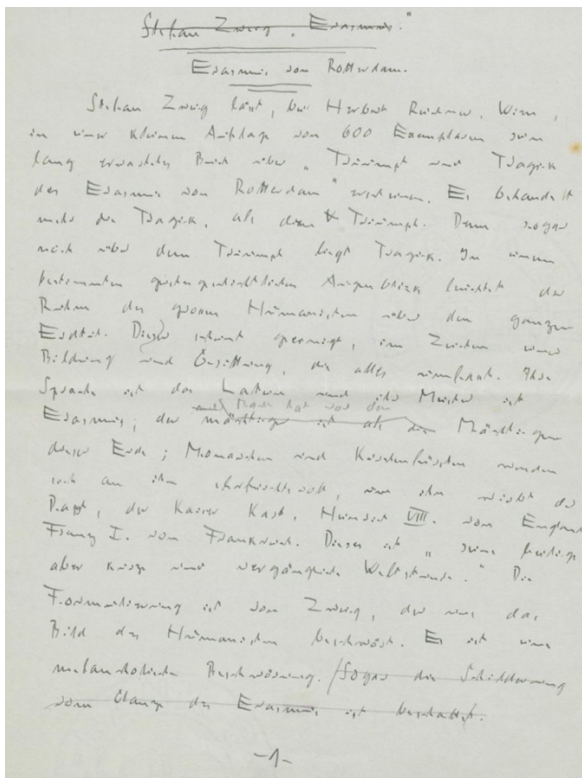 Stefan Zweig, „Erasmus."
Erasmus von Rotterdam.
Stefan Zweig lässt, bei Herbert Reichner, Wien,
in einer kleinen Auflage von 600 Exemplaren sein
lang erwartetes Buch über „Triumpf und Tragik
des Erasmus von Rotterdam" erscheinen. Es behandelt
mehr die Tragik, als den Triumpf. Denn sogar
noch über dem Triumpf liegt Tragik. In einem
bestimmten geistesgeschichtlichen Augenblick leuchtet der
Ruhm des grossen Humanisten über den ganzen
Erdteil. Dieser scheint geeinigt, im Zeichen einer
Bildung und Gesittung, die alles umfasst. Ihre
Sprache ist das Latein und ihr Meister ist
und Macht hat vor den
Erasmus; der mächtiger ist als die Mächtigen
dieser Erde; Monarchen und Kirchenfürsten wenden
sich an ihn ehrfurchtsvoll, um ihn wirbt der
Papst, der Kaiser Karl, Heinrich VIII. von England
Franz I. von Frankreich. Dieses ist „seine
aber kurze und vergängliche Weltstunde." Die
Formulierung ist von Zweig, der uns das
Bild des Humanisten beschwört. Es ist eine
melancholische Beschwörung. Sogar die Schilderung
vom Glanze des Erasmus ist beschattet.
-1-